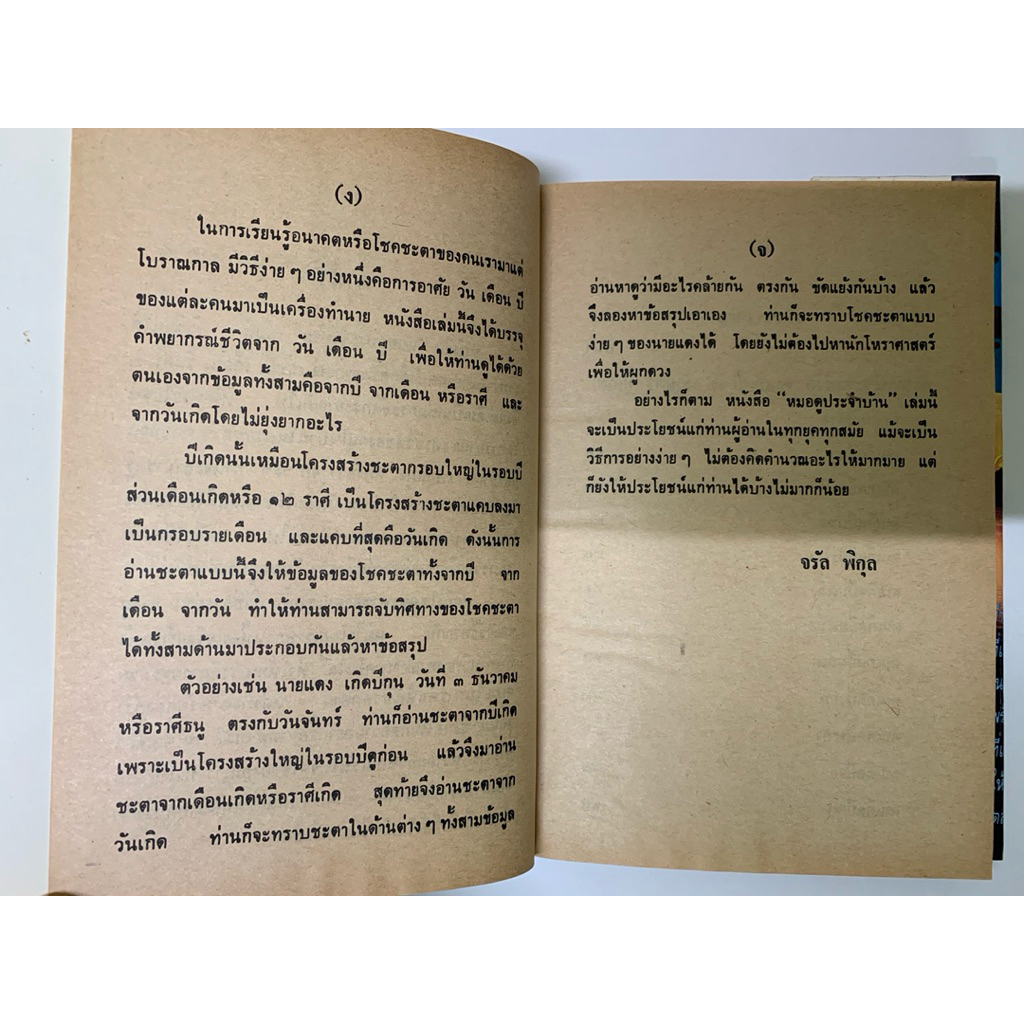 (ง)
ในการเรียนรู้อนาคตหรือโชคชะตาของคนเรามาแต่
โบราณกาล มีวิธีง่าย ๆ อย่างหนึ่งคือการอาศัย วัน เดือน ปี
ของแต่ละคนมาเป็นเครื่องทำนาย หนังสือเล่มนี้จึงได้บรรจุ
คำพยากรณ์ชีวิตจาก วัน เดือน ปี เพื่อให้ท่านดูได้ด้วย
ตนเองจากข้อมูลทั้งสามคือจากปี จากเดือน หรือราศี และ
จากวันเกิดโดยไม่ยุ่งยากอะไร
ปีเกิดนั้นเหมือนโครงสร้างชะตากรอบใหญ่ในรอบปี
ส่วนเดือนเกิดหรือ ๑๒ ราศี เป็นโครงสร้างชะตาแคบลงมา
เป็นกรอบรายเดือน และแคบที่สุดคือวันเกิด ดังนั้นการ
อ่านชะตาแบบนี้จึงให้ข้อมูลของโชคชะตาทั้งจากปี จาก
เดือน จากวัน ทำให้ท่านสามารถจับทิศทางของโชคชะตา
ได้ทั้งสามด้านมาประกอบกันแล้วหาข้อสรุป
ตัวอย่างเช่น นายแดง เกิดปีกุน วันที่ ๓ ธันวาคม
หรือราศีธนู ตรงกับวันจันทร์ ท่านก็อ่านชะตาจากปีเกิด
เพราะเป็นโครงสร้างใหญ่ในรอบปีดูก่อน แล้วจึงมาอ่าน
ชะตาจากเดือนเกิดหรือราศีเกิด สุดท้ายจึงอ่านชะตาจาก
วันเกิด ท่านก็จะทราบชะตาในด้านต่าง ๆ ทั้งสามข้อมูล
(จ)
อ่านหาดูว่ามีอะไรคล้ายกัน ตรงกัน ขัดแย้งกันบ้าง แล้ว
จึงลองหาข้อสรุปเอาเอง ท่านก็จะทราบโชคชะตาแบบ
ง่าย ๆ ของนายแดงได้ โดยยังไม่ต้องไปหานักโหราศาสตร์
เพื่อให้ผูกดวง
อย่างไรก็ตาม หนังสือ “หมอดูประจำบ้าน” เล่มนี้
จะเป็นประโยชน์แก่ท่านผู้อ่านในทุกยุคทุกสมัย แม้จะเป็น
วิธีการอย่างง่าย ๆ ไม่ต้องคิดคำนวณอะไรให้มากมาย แต่
ก็ยังให้ประโยชน์แก่ท่านได้บ้างไม่มากก็น้อย
จรัล พิกุล